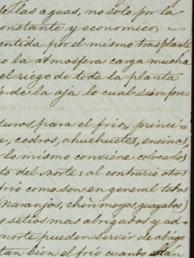 de las aguas, no solo por la
constante y economico,
entida por el mismo trasplante
la atmosfera carga mucha
el riego de toda la planta
de la aja lo cual siempre
turos para el frio, princi
, cedros, ahuehuetes, encinos,
lo mismo conviene colocarlos
to del norte; al contrario otros
frio como son en general toda
Naranjos, chirimoyas, guayabos)
sitios mas abrigados y ad
norte pueden servir de abrigo
tan bien el frio cuando estan